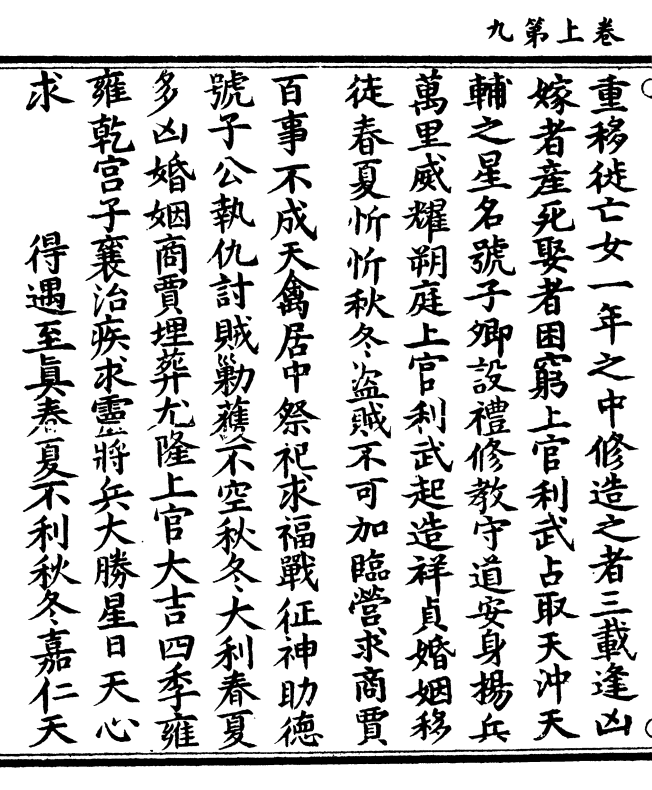 卷上第九
重移徙亡女一年之中修造之者三載逢凶
嫁者產死娶者困窮上官利武占取天沖天
輔之星名號子卿設禮修教守道安身楊兵
萬里威耀朔庭上官利武起造祥貞婚姻移
徒春夏忻忻秋冬盜賊不可加臨營求商賈
百事不成天禽居中祭祀求福戰征神助德
號子公執仇討賊勦蕪不空秋冬大利春夏
多凶婚姻商賈埋葬尤隆上官大吉四季雍
雍乾宮子襄治疾求靈將兵大勝星曰天心
求 得遇至眞春夏不利秋冬嘉仁天